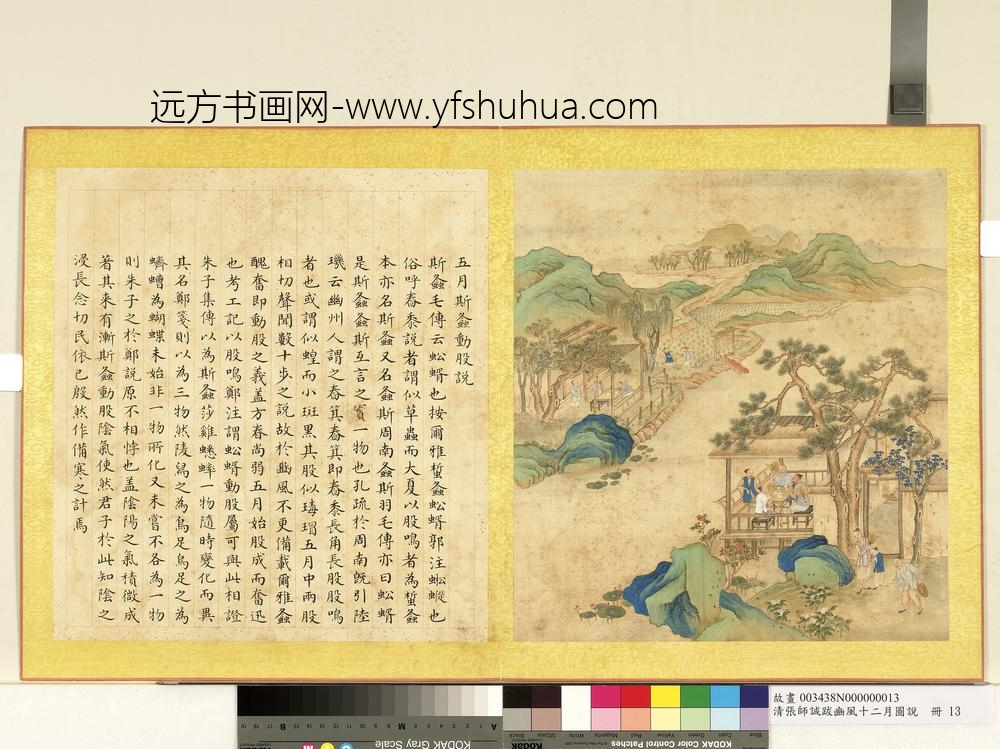 远方书画网-www.yfshuhua.com
五月斯螽動股説
斯螽毛傳云蚣蝑也按爾雅蜤螽蚣蝑郭注蜙蝑也
俗呼舂黍説者謂似草蟲而大夏以股鳴者為蜤螽
本亦名斯螽又名螽斯周南螽斯羽毛傳亦曰蚣蝑
是斯螽螽斯互言之實一物也孔疏於周南既引陸
璣云幽州人謂之舂箕舂箕即舂黍長角長股股鳴
者也或謂似蝗而小班黑其股似瑇瑁五月中兩股
相切聲聞數十步之説故於豳風不更備載爾雅螽
醜奮即動股之義盖方春尚弱五月始股成而奮迅
也考工記以股鳴鄭注謂蚣蝑動股屬可與此相證
朱子集傳以為斯螽莎雞蟋蟀一物隨時變化而異
其名鄭箋則以為三物然陵舄之為烏足烏足之為
蠐螬為蝴蝶未始非一物所化又未嘗不各為一物
則朱子之於鄭説原不相悖也盖陰陽之氣積微成
著其来有漸斯螽動股陰氣使然君子於此知陰之
浸長念切民依已殷然作備寒之計焉
故畫 003438N000000013
清張師誠跋豳風十二月圖說 冊 13
KODAK Gray Scale
Kodak Color Control Patches
Blue
Cyan
Green
Yellow
Red
Magenta
White
3/Color
Black